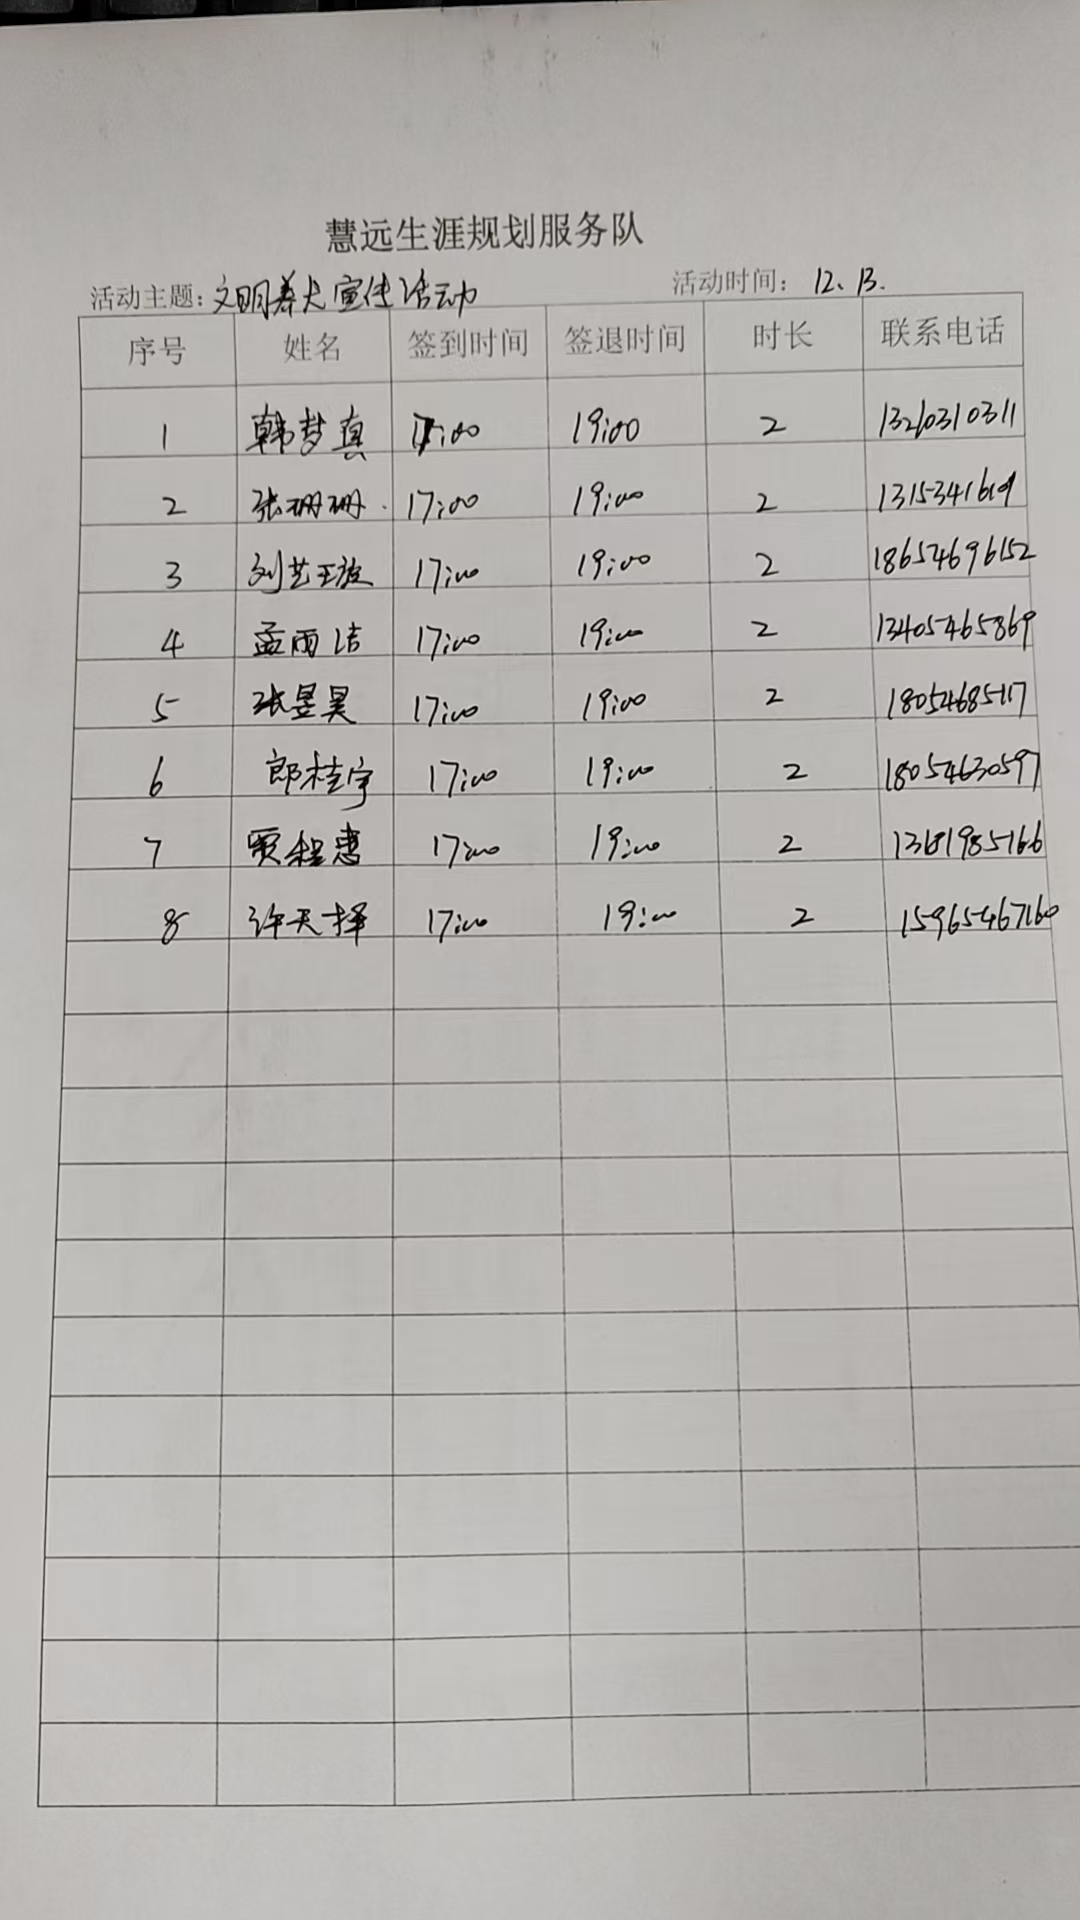 慧远生涯规划服务队
活动主题：文明养犬宣传活动 活动时间：12.13.
序号 姓名 签到时间 签退时间 时长 联系电话
1 韩梦真 17:00 19:00 2 13210310311
2 张珊珊. 17:00 19:00 2 13153341619
3 刘艺璇 17:00 19:00 2 18654696152
4 孟雨洁 17:00 19:00 2 13405465869
5 张昱昊 17:00 19:00 2 18054685117
6 郎桂宇 17:00 19:00 2 18054630597
7 贾程惠 17:00 19:00 2
8 许天择 17:00 19:00 2 15965467160